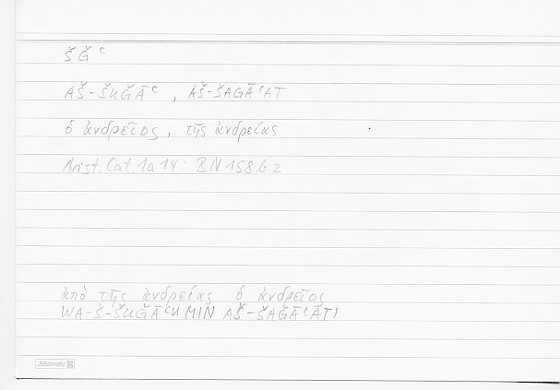 ŠǦʿ
AŠ-ŠUǦĀʿ, AŠ-ŠAǦĀʿAT
ὁ ἀνδρεῖος, τῆς ἀνδρείας
Arist. Cat. 1a14: BN 158b2
ἀπὸ τῆς ἀνδρείας ὁ ἀνδρεῖος
WA-Š-ŠUǦĀʿU MIN AŠ-ŠAǦĀʿATI
BRUNNEN